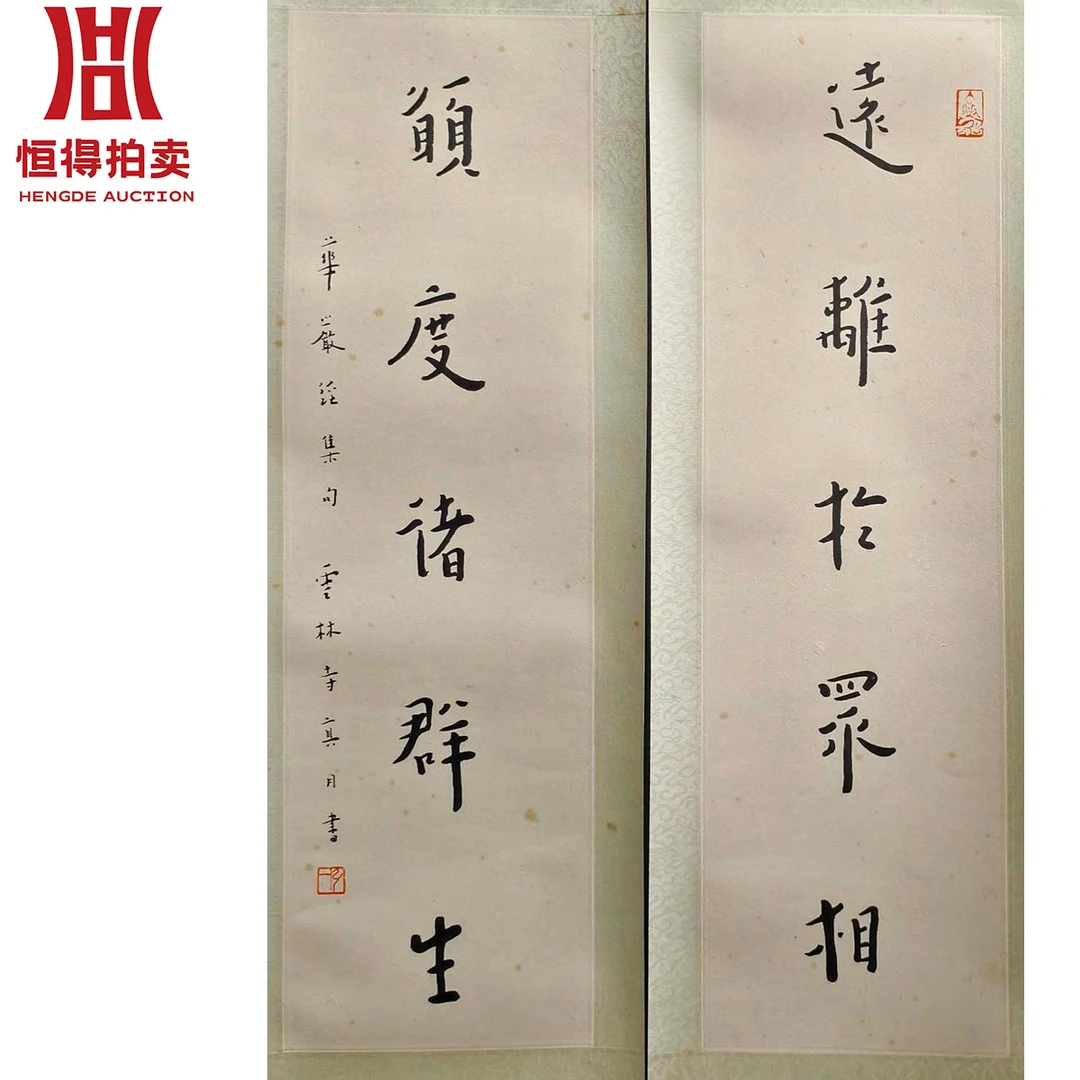 恒得拍卖
HENGDE AUCTION
遠離於眾相
願度諸群生
華嚴經集句 雲林寺真月書